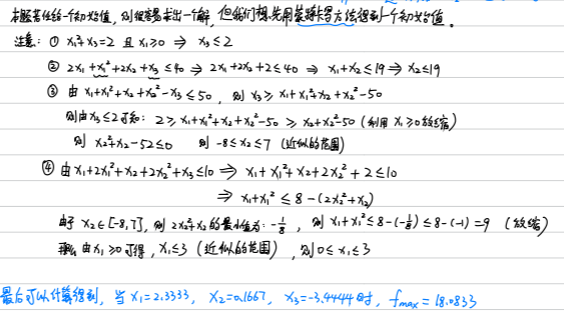 本题若任给一个初始值，则很容易求出一个解，但我们想先用蒙特卡罗方法得到一个初始值。
注意：① x₁²+x₃=2 且 x₁≥0 ⇒ x₃≤2
② 2x₁+x₁²+2x₂+x₃≤40 ⇒ 2x₁+2x₂+2≤40 ⇒ x₁+x₂≤19 ⇒ x₂≤19
③ 由 x₁+x₁²+x₂+x₂²-x₃≤50，则 x₃≥x₁+x₁²+x₂+x₂²-50
则由 x₃≤2 可知：2≥x₁+x₁²+x₂+x₂²-50≥x₂+x₂²-50（利用 x₁≥0 放缩）
则 x₂²+x₂-52≤0 则 -8≤x₂≤7（近似的范围）
④ 由 x₁+2x₁²+x₂+2x₂²+x₃≤10 ⇒ x₁+x₁²+x₂+2x₂²+2≤10
⇒ x₁+x₁²≤8-(2x₂²+x₂)
由于 x₂∈[-8,7]，则 2x₂²+x₂ 的最小值为：-1/8，则 x₁+x₁²≤8-(-1/8)≤8-(-1)=9（放缩）
由 x₁≥0 可得，x₁≤3（近似的范围），则 0≤x₁≤3
最后可以计算得到，当 x₁=2.3333，x₂=0.1667，x₃=-3.4444 时，fmax=18.0833